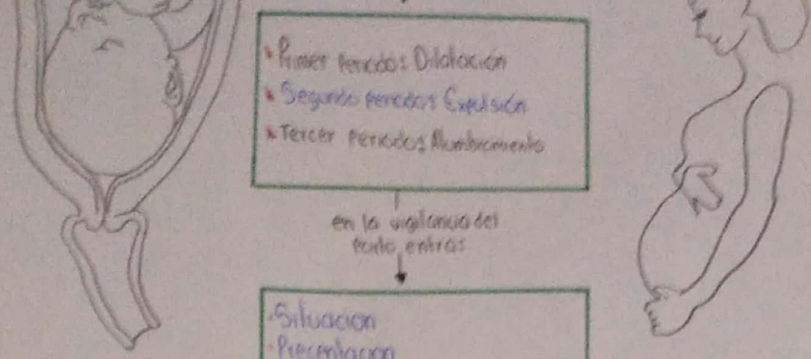 Primer periodo: Dilatación
Segundo periodo: Expulsión
Tercer periodo: Alumbramiento
en la vigilancia del
Parto, entras
Situacion
Precentacion